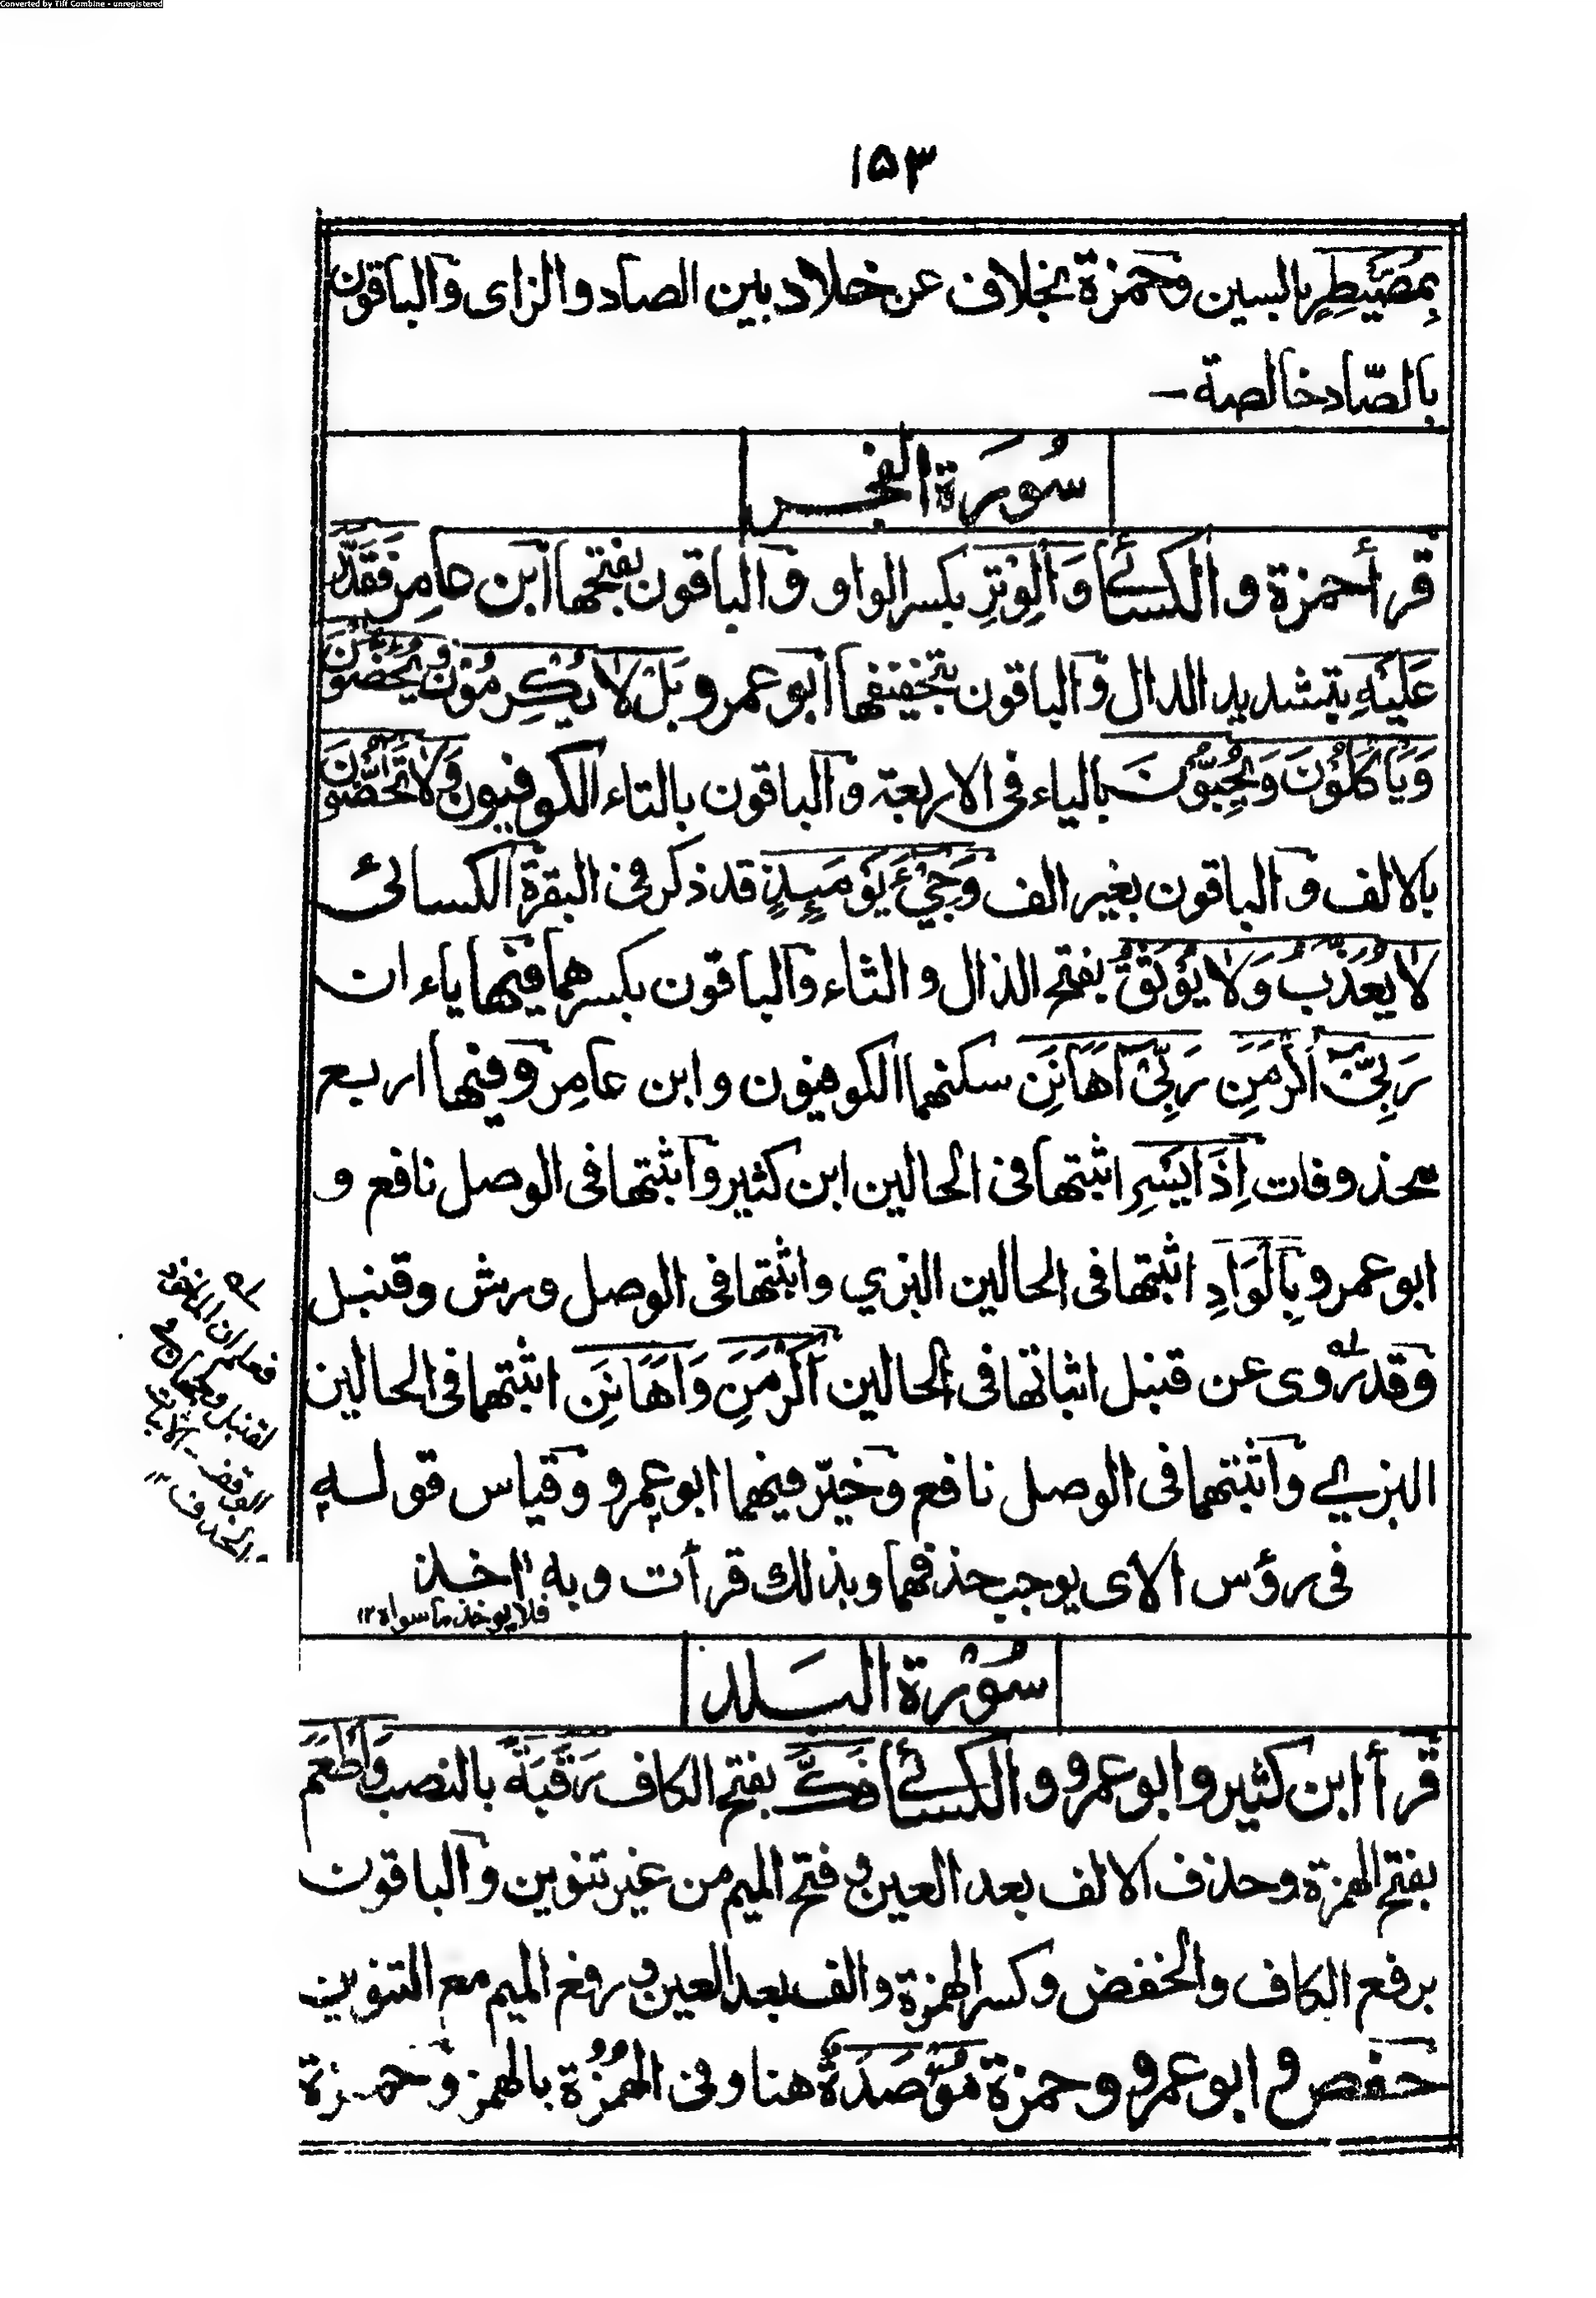 Converted by Tiff Combine - unregistered
١٥٣
بِمُصَيْطِرٍ بالسين وحمزة بخلاف عن خلاد بين الصاد والزاى والباقون
بالصّاد خالصة —
سُورَة الفجر
قرأ حمزة والكسائى وَالْوِتْرِ بكسر الواو والباقون بفتحها ابن عامر فَقَدَّرَ
عَلَيْهِ بتشديد الدال والباقون بتخفيفها ابو عمرو بَلْ لَا يُكْرِمُوْنَ وَيَحُضُّوْنَ
وَيَأْكُلُوْنَ وَيُحِبُّوْنَ بالياء فى الاربعة والباقون بالتاء الكوفيون وَلَا تَحَاضُّوْنَ
بالالف والباقون بغير الف وَجِيْءَ يَوْمَئِذٍ قد ذكر فى البقرة الكسائى
لَا يُعَذَّبُ وَلَا يُوْثَقُ بفتح الذال والثاء والباقون بكسرهما فيها ياء ات
رَبِّيْ اَكْرَمَنِ رَبِّيْ اَهَانَنِ سكنهما الكوفيون وابن عامر وفيها اربع
محذوفات اِذَا يَسْرِ اثبتها فى الحالين ابن كثير واثبتها فى الوصل نافع و
ابو عمرو بِالْوَادِ اثبتها فى الحالين البزي واثبتها فى الوصل ورش وقنبل
وقد روى عن قنبل اثباتها فى الحالين اَكْرَمَنِ وَاَهَانَنِ اثبتهما فى الحالين
البزى واثبتهما فى الوصل نافع وخيّر فيهما ابو عمرو وقياس قوله
فى رؤس الاى يوجب حذفهما وبذلك قرأت وبه اخذ
فلا يوخذ ما سواه ١٢
سُوْرَة البَلد
قرأ ابن كثير وابو عمرو والكسائى فَكَّ بفتح الكاف رَقَبَةً بالنصب وَاَطْعَمَ
بفتح الهمزة وحذف الالف بعد العين وفتح الميم من غير تنوين والباقون
برفع الكاف والخفض وكسر الهمزة والف بعد العين ورفع الميم مع التنوين
حفص وابو عمرو وحمزة مُؤْصَدَةٌ هنا وفى الهُمَزَة بالهمز وحمزة
له
فعلم ان الماخوذ
لقنبل وجهان فى
الوقف الاثبات
والحذف ١٢